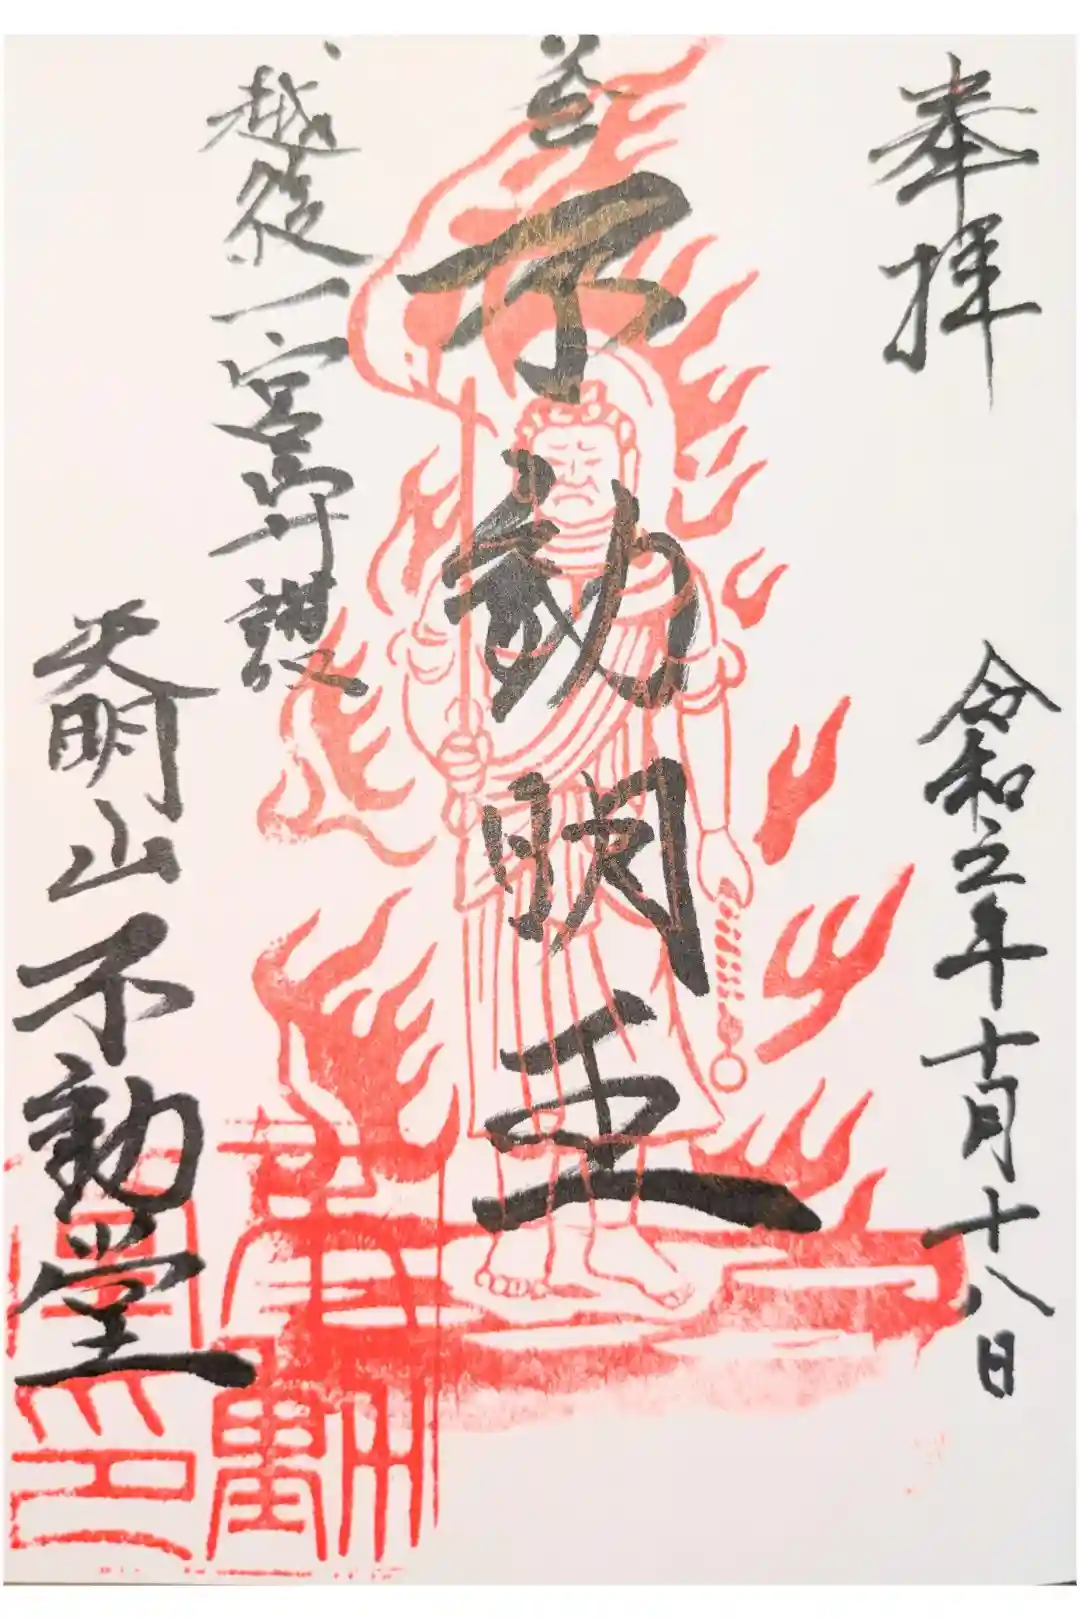 奉拝
令和五年十月十八日
不動明王
越後一宮
天明山不動堂